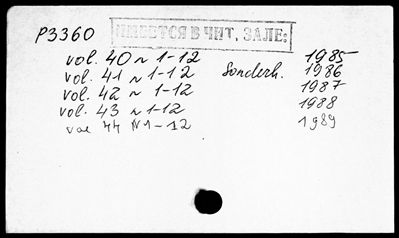 P3360 ИМЕЕТСЯ В ЧИТ. ЗАЛЕ:
vol. 40 n 1-12 1985
vol. 41 n 1-12 Sonderh. 1986
vol. 42 n 1-12 1987
vol. 43 n 1-12 1988
vol 44 N1-12 1989